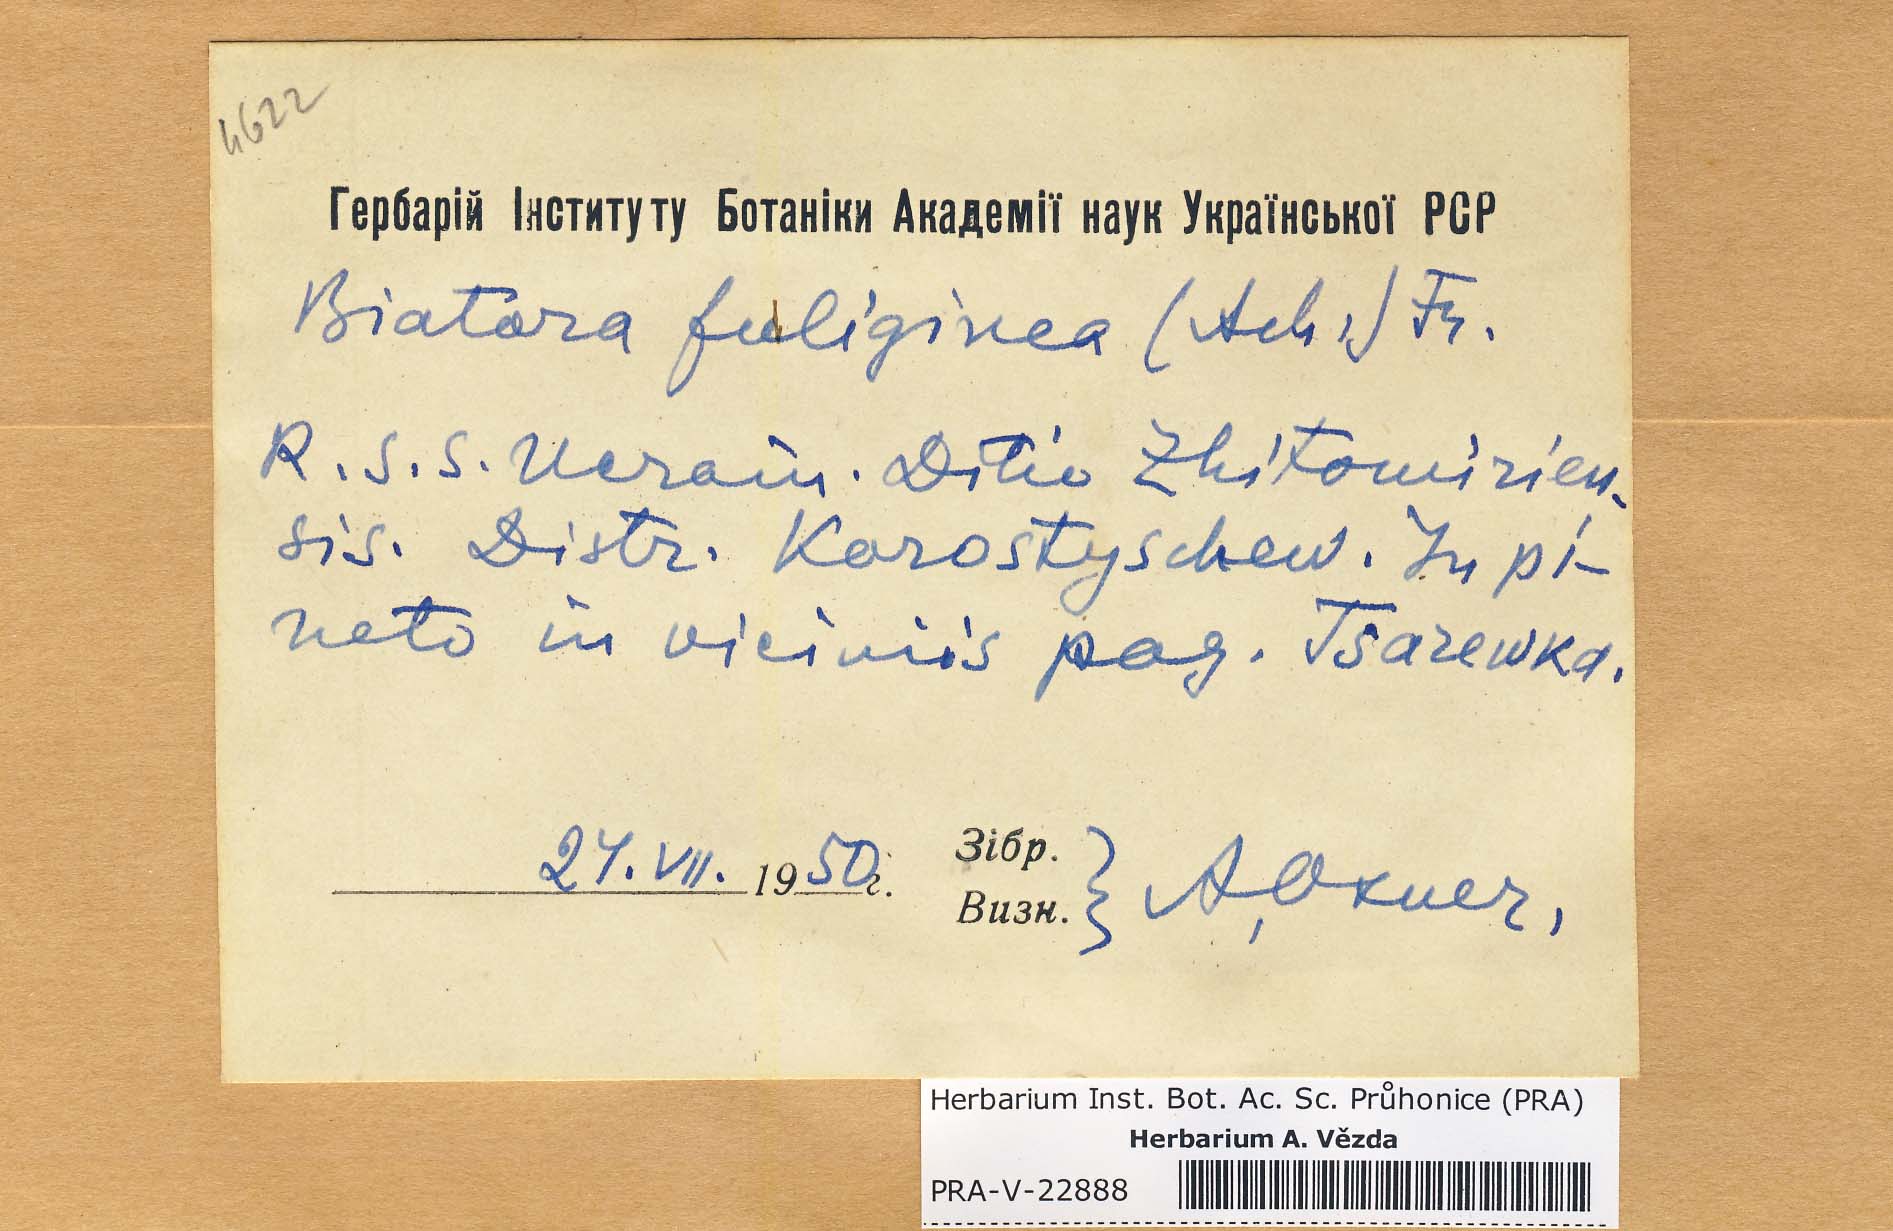 4622
Гербарій Інституту Ботаніки Академії наук Української РСР
Biatora fuliginea (Ach.) Fr.
R.S.S. Ucrain. Ditio Zhitomirien-
sis. Distr. Korostyschew. In pi-
neto in viciniis pag. Tsarewka.
24.VII. 1950 г.
Зібр.
Визн. } A. Oxner.
Herbarium Inst. Bot. Ac. Sc. Průhonice (PRA)
Herbarium A. Vězda
PRA-V-22888